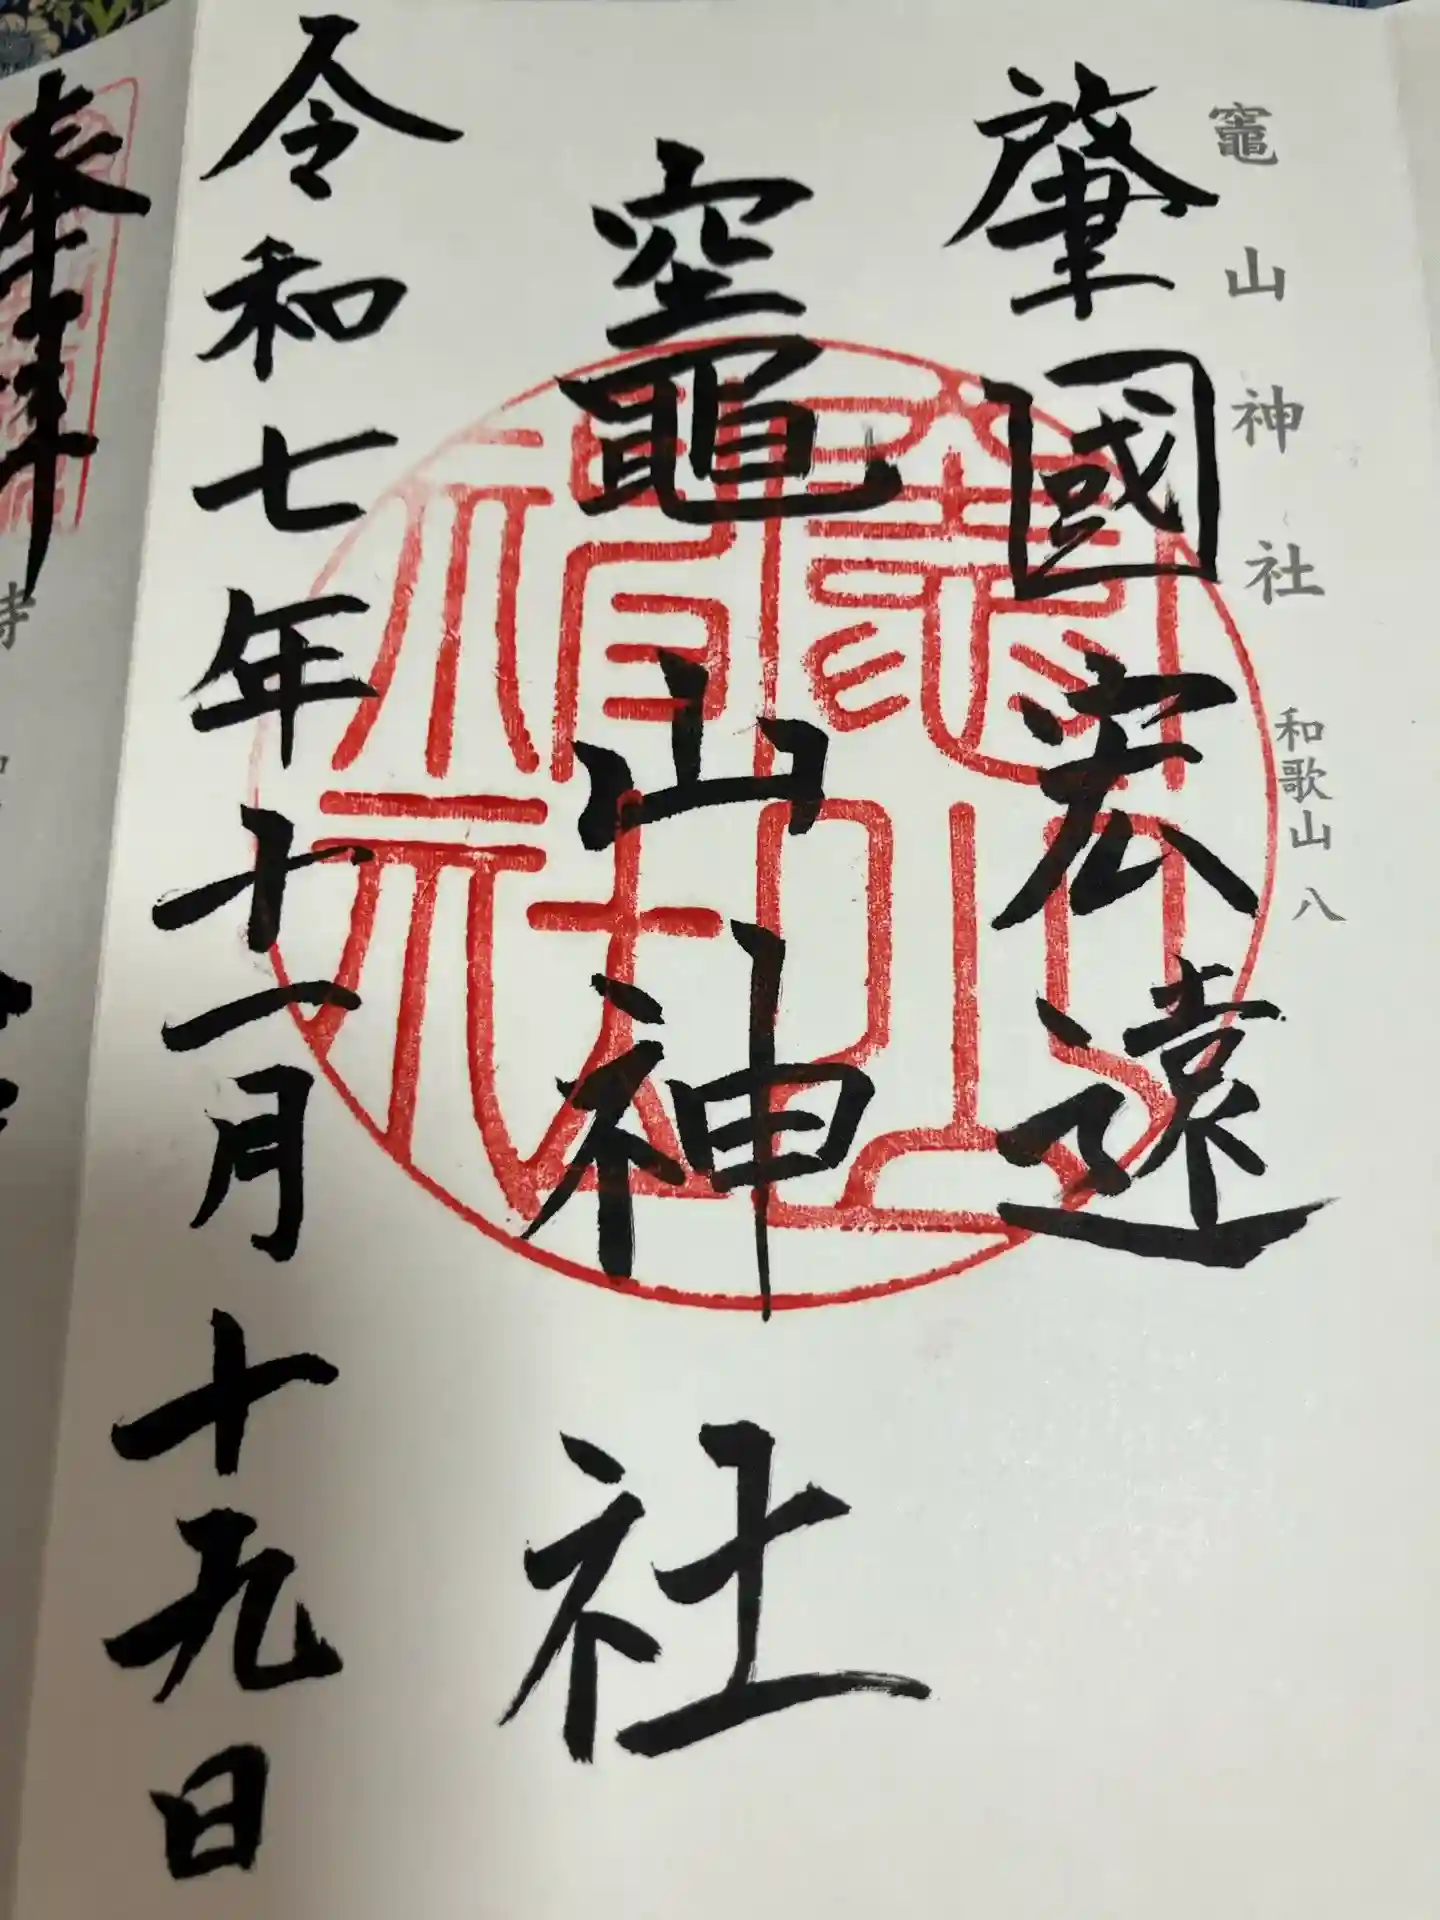 竈山神社 和歌山 八
肇國宏遠
竈山神社
令和七年十一月十九日
奉拝